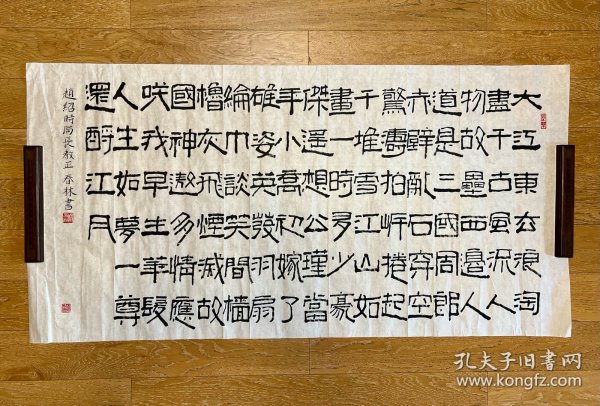 大江東去浪淘
盡千古風流人
物故壘西邊人
道是三國周郎
赤壁亂石穿空
驚濤拍岸捲起
千堆雪江山如
畫一時多少豪
傑遥想公瑾當
年小喬初嫁了
雄姿英發羽扇
綸巾談笑間檣
櫓灰飛煙滅故
國神遨多情應
咲我早生華髮
人生如夢一尊
還酹江月
趙紹時局長教正 春林書
孔夫子旧书网
www.kongfz.com